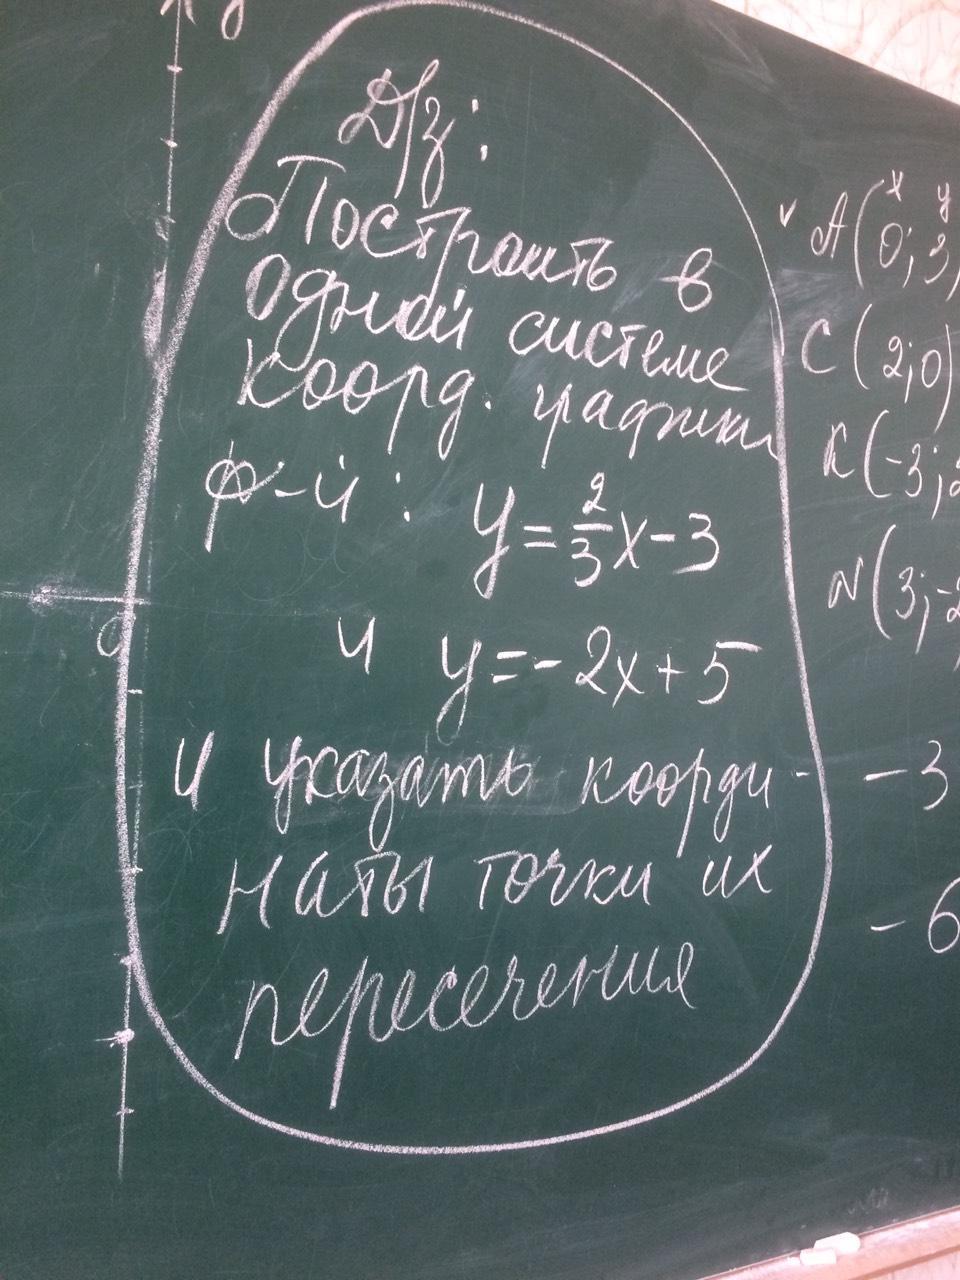 y
Д/з:
Построить в
одной системе
коорд. графики
ф-й: y = 2/3 x - 3
и y = -2x + 5
и указать коорди-
наты точки их
пересечения
x y
v A(0; 3)
C(2; 0)
K(-3; 2
N(3; -2
-3
-6
0